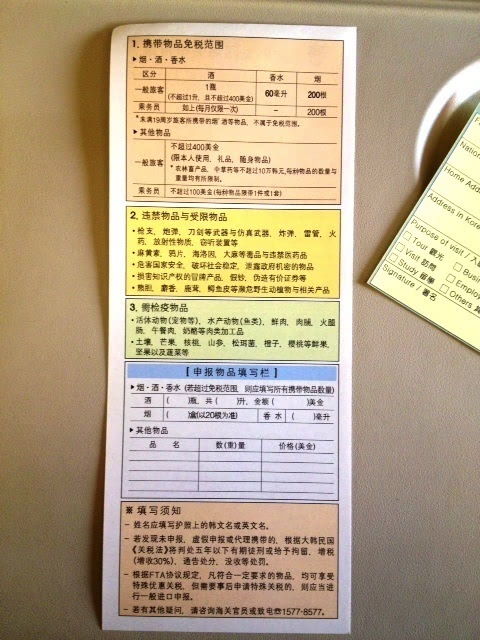 1. 携带物品免税范围
▶烟·酒·香水
区分 酒 香水 烟
一般旅客 1瓶 (不超过1升, 且不超过400美金) 60毫升 200根
乘务员 如上(每月仅限一次) – 200根
*未满19周岁旅客所携带的烟·酒等物品, 不属于免税范围。
▶其他物品
一般旅客 不超过400美金
(限本人使用、礼品、随身物品)
*农林畜产品、中草药等不超过10万韩元,每种物品的数量与
重量均有所限制。
乘务员 不超过100美金(每种物品限带1件或1套)
2. 违禁物品与受限物品
• 枪支、炮弹、刀剑等武器与仿真武器、炸弹、雷管、火
药、放射性物质、窃听装置等
• 麻黄素、鸦片、海洛因、大麻等毒品与违禁医药品
• 危害国家安全、破坏社会稳定、泄露政府机密的物品
• 损害知识产权的冒牌产品、假钞、伪造有价证券等
• 熊胆、麝香、鹿茸、鳄鱼皮等濒危野生动植物与相关产品
3. 需检疫物品
• 活体动物(宠物等)、水产动物(鱼类)、鲜肉、肉脯、火腿
肠、午餐肉、奶酪等肉类加工品
• 土壤、芒果、核桃、山参、松茸菌、橙子、樱桃等鲜果、
坚果以及蔬菜等
【申报物品填写栏】
▶烟·酒·香水 (若超过免税范围, 则应填写所有携带物品数量)
酒 ( )瓶, 共 ( )升, 金额 ( )美金
烟 ( )盒(以20根为准) 香水 ( )毫升
▶其他物品
品 名 数(重)量 价格(美金)
※ 填写须知
– 姓名应填写护照上的韩文名或英文名。
– 若发现未申报、虚假申报或代理携带的, 根据大韩民国
《关税法》将判处五年以下有期徒刑或给予拘留、增税
(增收30%)、通告处分、没收等处罚。
– 根据FTA协议规定, 凡符合一定要求的物品, 均可享受
特殊优惠关税, 但需要事后申请特殊关税的, 则应当进
行一般进口申报。
– 若有其他疑问, 请咨询海关官员或致电☎1577-8577。
Nation
Home Add
Address in Kore
Purpose of visit / 入
□ Tour 觀光
□ Visit 訪問
□ Study 留學
□ Busi
□ Employ
□ Others
Signature / 署名